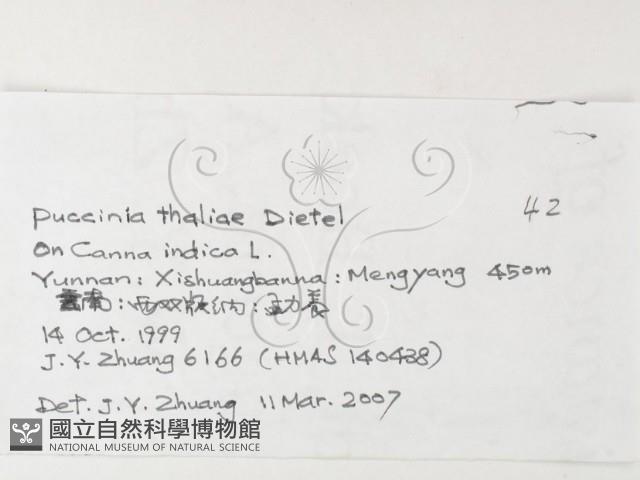 Puccinia thaliae Dietel 42
On Canna indica L.
Yunnan: Xishuangbanna: Mengyang 450m
雲南:西双版納:勐养
14 Oct. 1999
J.Y. Zhuang 6166 (HMAS 140438)
Det. J.Y. Zhuang 11 Mar. 2007
國立自然科學博物館
NATIONAL MUSEUM OF NATURAL SCIENCE